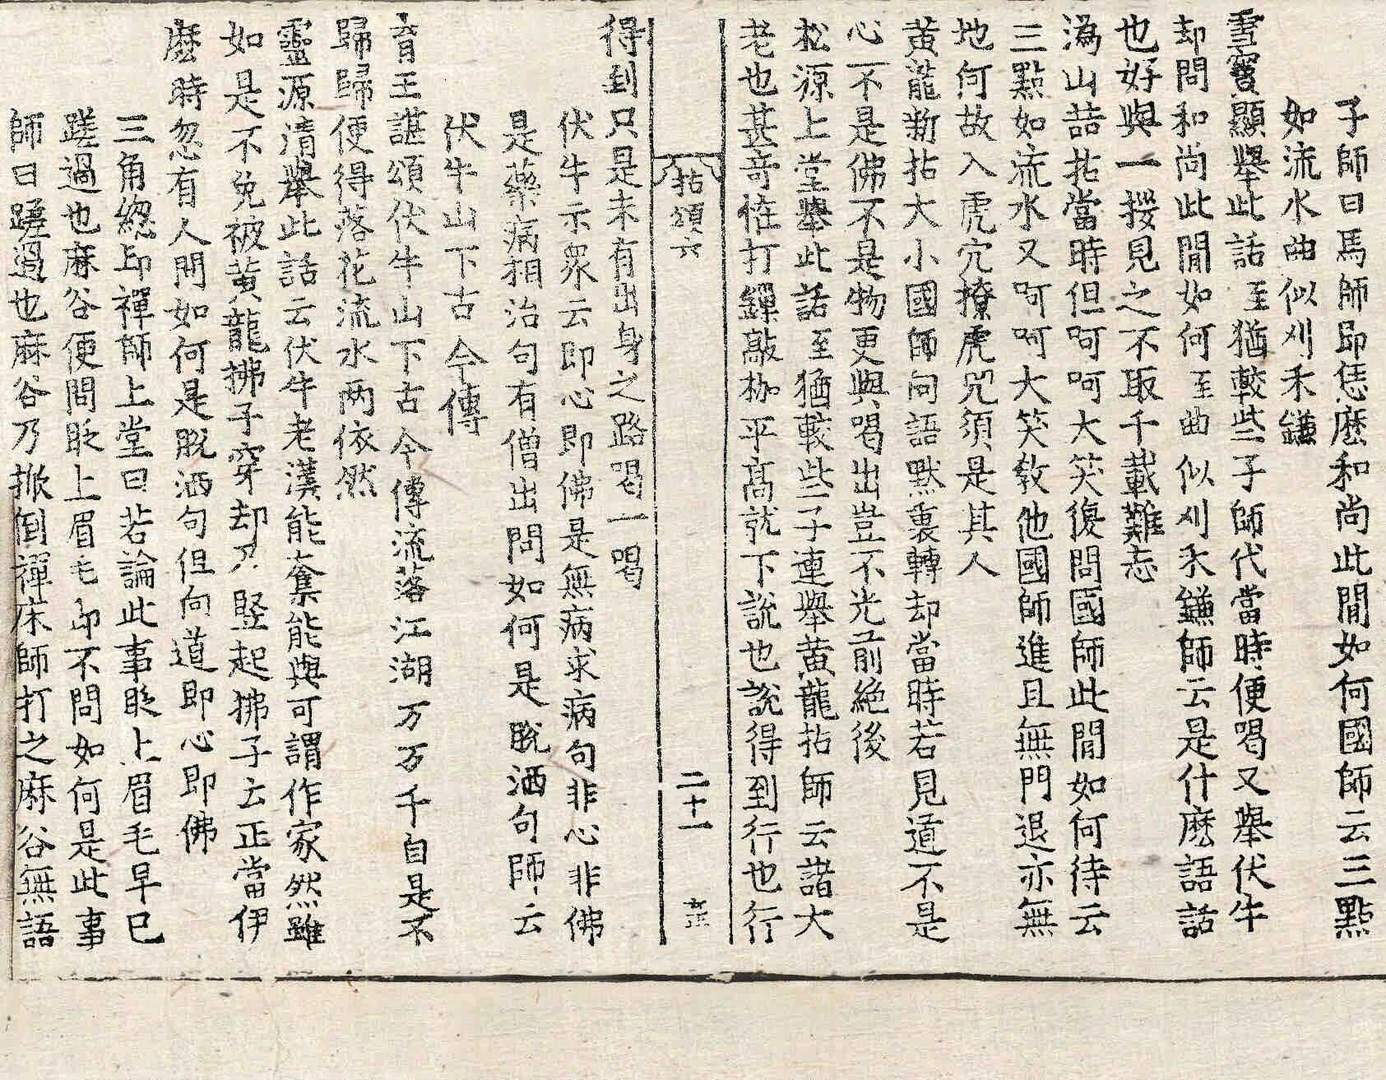 子師曰馬師即恁麽和尚此間如何國師云三點
如流水曲似刈禾鎌
雪竇顯舉此話至猶較些子師代當時便喝又舉伏牛
却問和尚此間如何至曲似刈禾鎌師云是什麽語話
也好與一拶見之不取千載難忘
溈山喆拈當時但呵呵大笑復問國師此間如何待云
三點如流水又呵呵大笑敎他國師進且無門退亦無
地何故入虎穴撩虎兕須是其人
黃龍新拈大小國師向語默裏轉却當時若見道不是
心不是佛不是物更與喝出豈不光前絶後
松源上堂舉此話至猶較些子連舉黃龍拈師云諸大
老也甚奇恠打鑼敲枷平高就下說也說得到行也行
拈頌六
二十一
得到只是未有出身之路喝一喝
伏牛示眾云即心即佛是無病求病句非心非佛
是藥病相治句有僧出問如何是脫洒句師云
伏牛山下古今傳
育王諶頌伏牛山下古今傳流落江湖万万千自是不
歸歸便得落花流水两依然
靈源清舉此話云伏牛老漢能奪能與可謂作家然雖
如是不免被黃龍拂子穿却乃竪起拂子云正當伊
麽時忽有人問如何是脫洒句但向道即心即佛
三角總印禪師上堂曰若論此事眨上眉毛早已
蹉過也麻谷便問眨上眉毛即不問如何是此事
師曰蹉過也麻谷乃掀倒禪床師打之麻谷無語